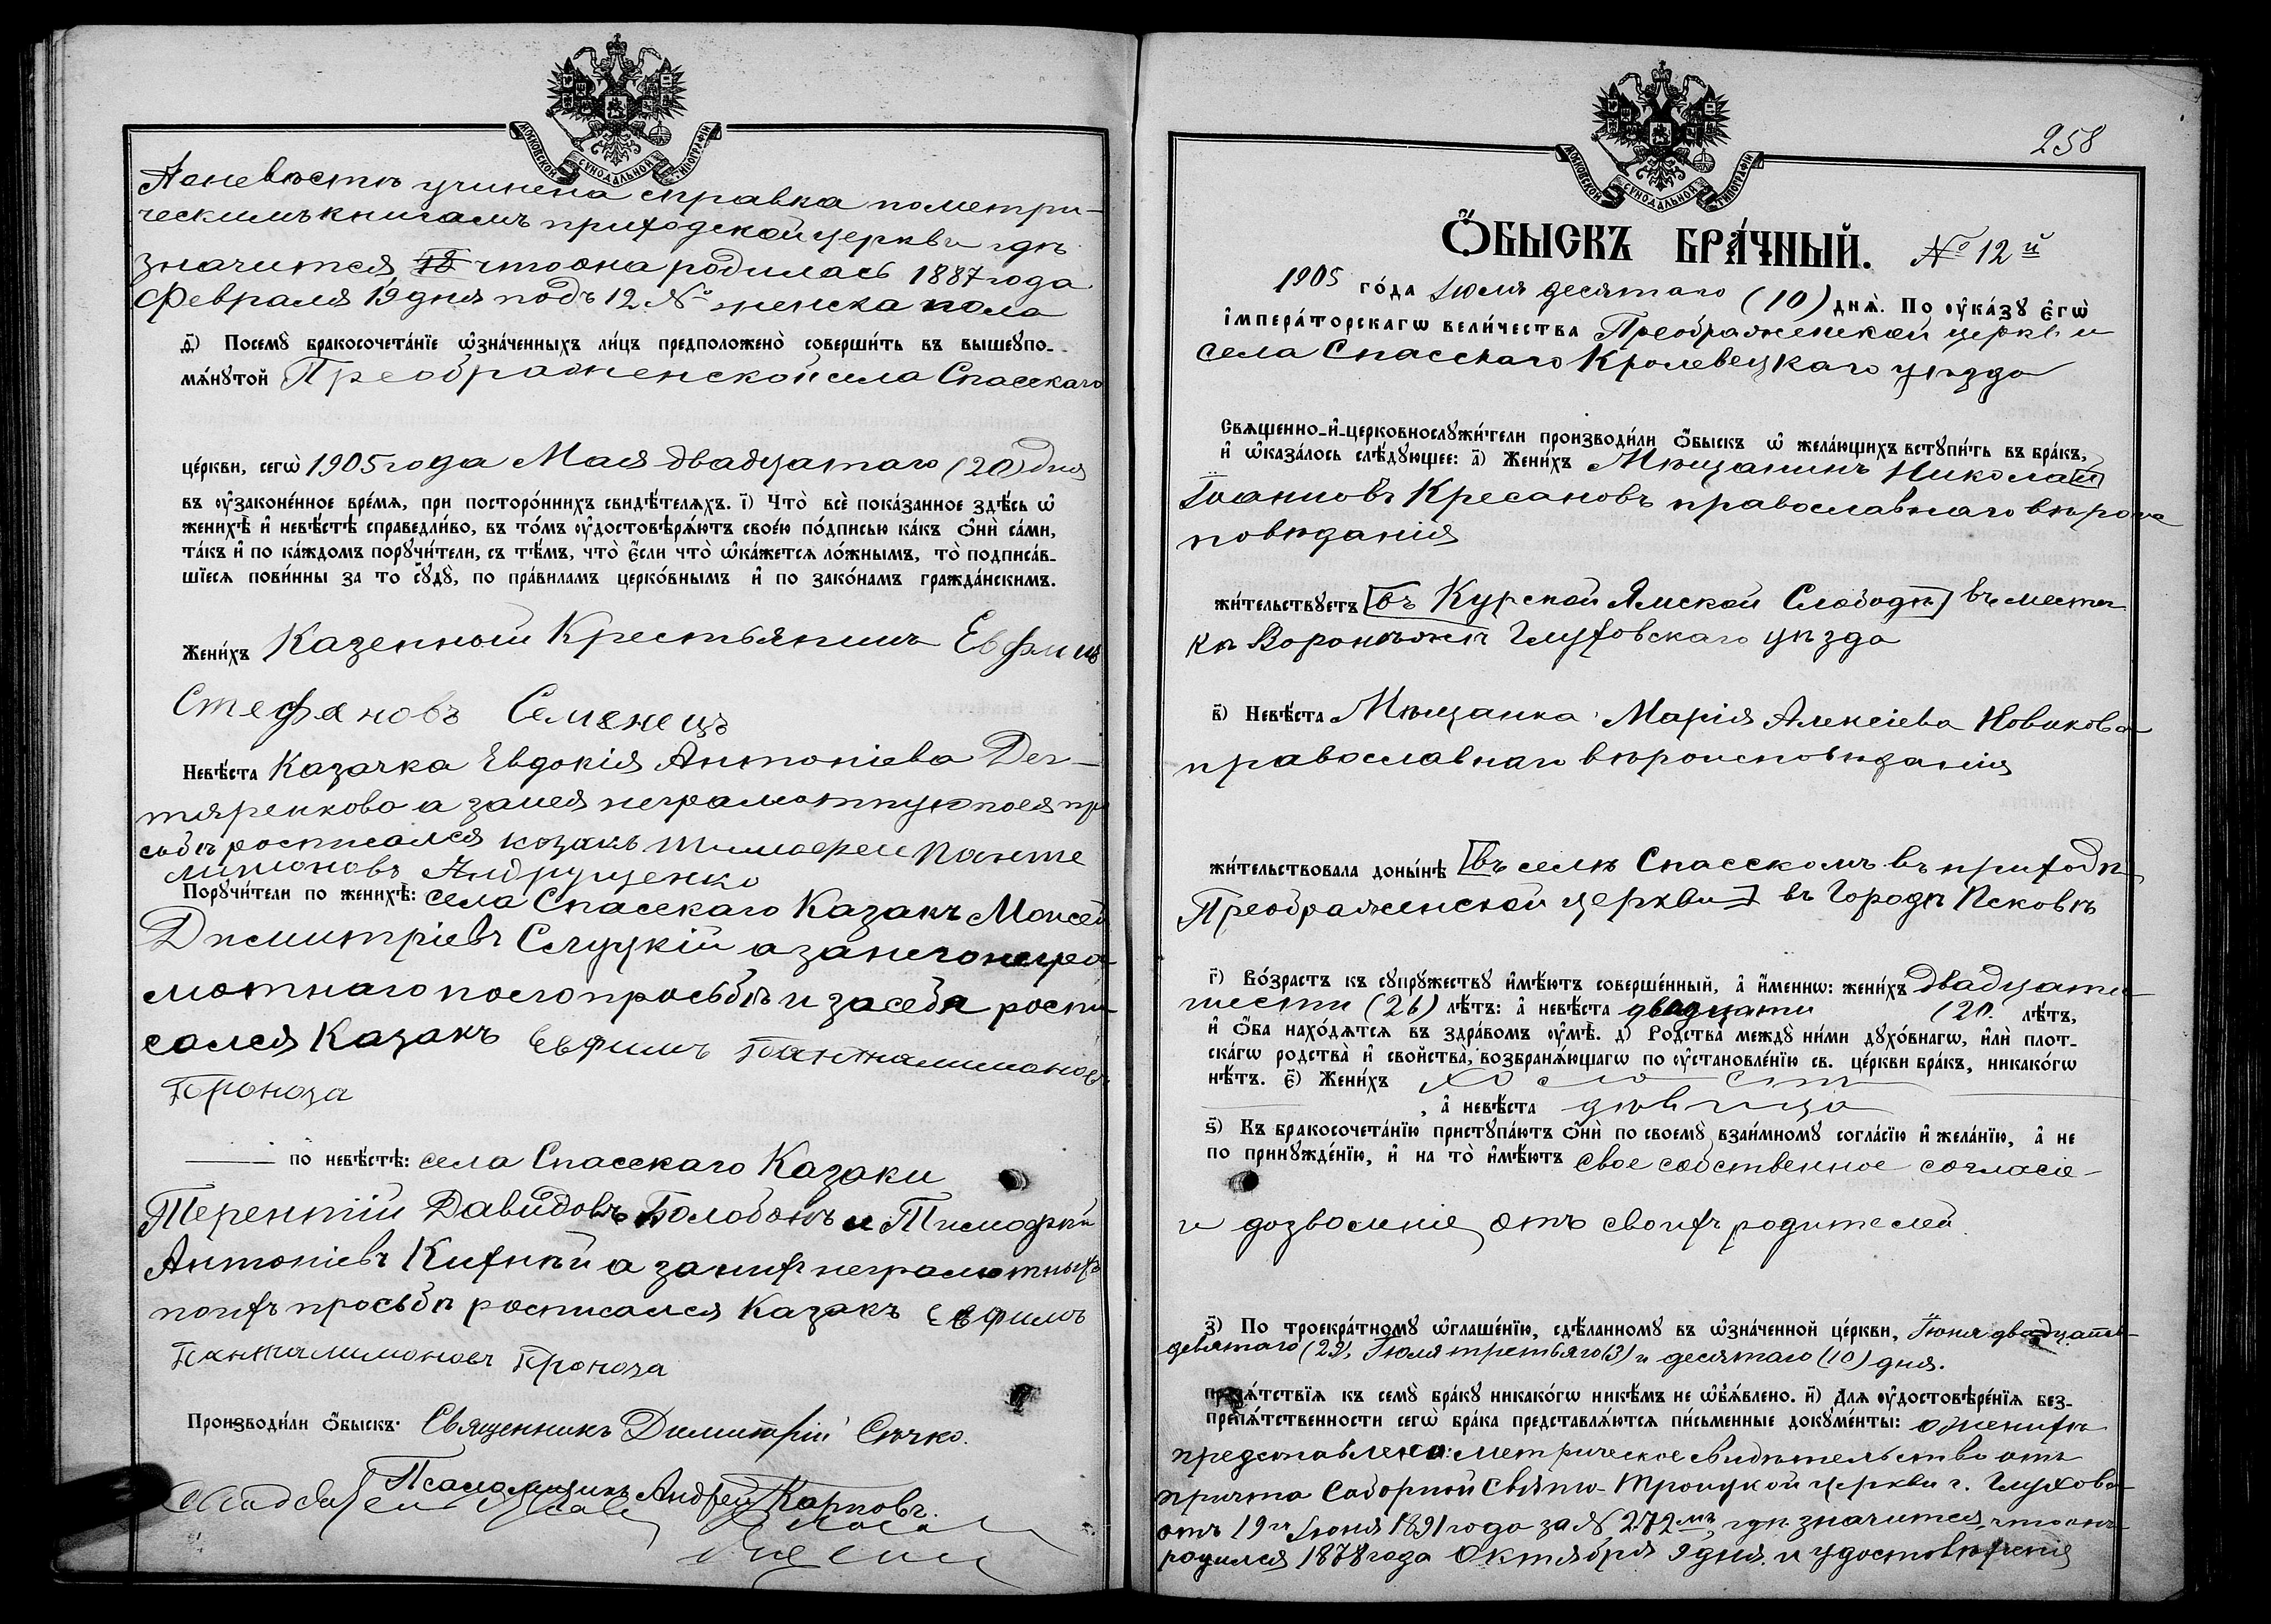 МОСКОВСКОЙ СУНОДАЛЬНОЙ ТИПОГРАФІИ
А о невѣстѣ учинена справка по метри-
ческимъ книгамъ приходской церкви гдѣ
значится, что она родилась 1887 года
Февраля 19 дня подъ 12 № женска пола
Ѳ҃) Посемꙋ̀ бракосочета́нїе ѡ҆зна́ченныхъ ли́цъ предположено̀ соверши́ть въ вышеупо-
мѧ́нꙋтой Преображенской села Спасскаго
це́ркви, сегѡ̀ 1905 года Мая двадцатаго (20) дня
въ ᲂу҆законе́нное вре́мѧ, при посторо́ннихъ свидѣ́телѧхъ. і҃) Что̀ всѐ пока́занное здѣ́сь ѡ҆
женихѣ̀ и҆ невѣ́стѣ справедли́во, въ то́мъ ᲂу҆достовѣрѧ́ютъ свое́ю по́дписью ка́къ ѻ҆нѝ са́ми,
та́къ и҆ по ка́ждомъ порꙋчи́тели, съ тѣ́мъ, что̀ є҆́сли что̀ ѡ҆ка́жетсѧ ло́жнымъ, то̀ подписа́в-
шїесѧ пови́нны за то сꙋдꙋ̀, по пра́виламъ церко́внымъ и҆ по зако́намъ гражда́нскимъ.
Жени́хъ Казенный Крестьянинъ Евфимъ
Стефановъ Семенецъ
Невѣ́ста Казачка Евдокія Антоніева Дег-
тяренкова а за нея неграмотную по ея про
сьбѣ росписался козакъ Тимофей Панте
лимоновъ Андрущенко
Порꙋчи́тели по женихѣ̀: села Спасскаго Казакъ Моисей
Димитріевъ Слуцкій а за него негра
мотнаго по его просьбѣ и за себя роспи-
сался Казакъ Евфимъ Пантилимоновъ
Проноза
по невѣ́стѣ: села Спасскаго Казаки
Терентій ДавидовъБолобонъ и Тимофей
Антоніевъ Кихтѣй а за ихъ неграмотныхъ
по ихъ просьбѣ росписался Казакъ Евфимъ
Пантилимоновъ Проноза
Производи́ли ѻ҆́быскъ: Священникъ Димитрій Сѣчко.
Псаломщикъ Андрей Карповъ.
258
МОСКОВСКОЙ СУНОДАЛЬНОЙ ТИПОГРАФІИ
Ѻ҆́БЫСКЪ БРА́ЧНЫЙ. № 12й
1905 го́да Іюля десятаго (10) днѧ̀. По ᲂу҆ка́зꙋ є҆гѡ̀
і҆мпера́торскагѡ вели́чества Преображенской церкви
села Спасскаго Кролевецкаго уѣзда
Свѧщенно-и҆-церковнослꙋжи́тели производи́ли ѻ҆́быскъ ѡ҆ жела́ющихъ встꙋпи́ть въ бра́къ,
и҆ ѡ҆каза́лось слѣ́дꙋющее: а҃) Жени́хъ Мѣщанинъ Николай
Іоанновъ Кресановъ православнаго вѣроис
повѣданія
жи́тельствꙋетъ [въ Курской Ямской Слободѣ] въ местеч
кѣ Воронѣжѣ Глуховскаго уѣзда
в҃) Невѣ́ста Мѣщанка Марія Алексіева Новикова
православнаго вѣроисповѣданія
жи́тельствовала доны́нѣ [въ селѣ Спасскомъ въ приходѣ
Преображенской церкви] въ Городѣ Псковѣ
г҃) Во́зрастъ къ сꙋпрꙋ́жествꙋ и҆мѣ́ютъ соверше́нный, а҆ и҆́меннѡ: жени́хъ двадцати
шести (26) лѣ́тъ: а҆ невѣ́ста двадцати (20. лѣ́тъ,
и҆ ѻ҆́ба нахо́дѧтсѧ въ здра́вомъ ᲂу҆мѣ̀. д҃) Родства̀ междꙋ̀ ни́ми дꙋхо́внагѡ, и҆лѝ плот-
ска́гѡ родства̀ и҆ свойства̀, возбранѧ́ющагѡ по ᲂу҆становле́нїю св. це́ркви бра́къ, никако́гѡ
нѣ́тъ. є҃) Жени́хъ холостъ
, а҆ невѣ́ста дѣвица
ѕ҃) Къ бракосочета́нїю пристꙋпа́ютъ ѻ҆нѝ по своемꙋ̀ взаи́мномꙋ согла́сїю и҆ жела́нїю, а҆ не
по принꙋжде́нїю, и҆ на то̀ и҆мѣ́ютъ свое собственное согласіе
и дозволеніе отъ своихъ родителей.
з҃) По троекра́тномꙋ ѡ҆глаше́нїю, сдѣ́ланномꙋ въ ѡ҆зна́ченной це́ркви, Іюня двадцать
девятаго (29), Іюля третьяго (3) и десятаго (10) дня.
препѧ́тствїѧ къ семꙋ̀ бра́кꙋ никако́гѡ никѣ́мъ не ѡ҆б̾ѧ́влено. и҃) Длѧ ᲂу҆достовѣре́нїѧ без-
препѧ́тственности сегѡ̀ бра́ка представлѧ́ютсѧ пи́сьменные докꙋме́нты: о женихѣ
представлено: метрическое свидѣтельство отъ
причта Соборной Свято-Троицкой церкви г. Глухова
отъ 19го Іюня 1891 года за № 272мъ, гдѣ значится, что онъ
родился 1878 года Октября 9 дня и удостовѣреніе